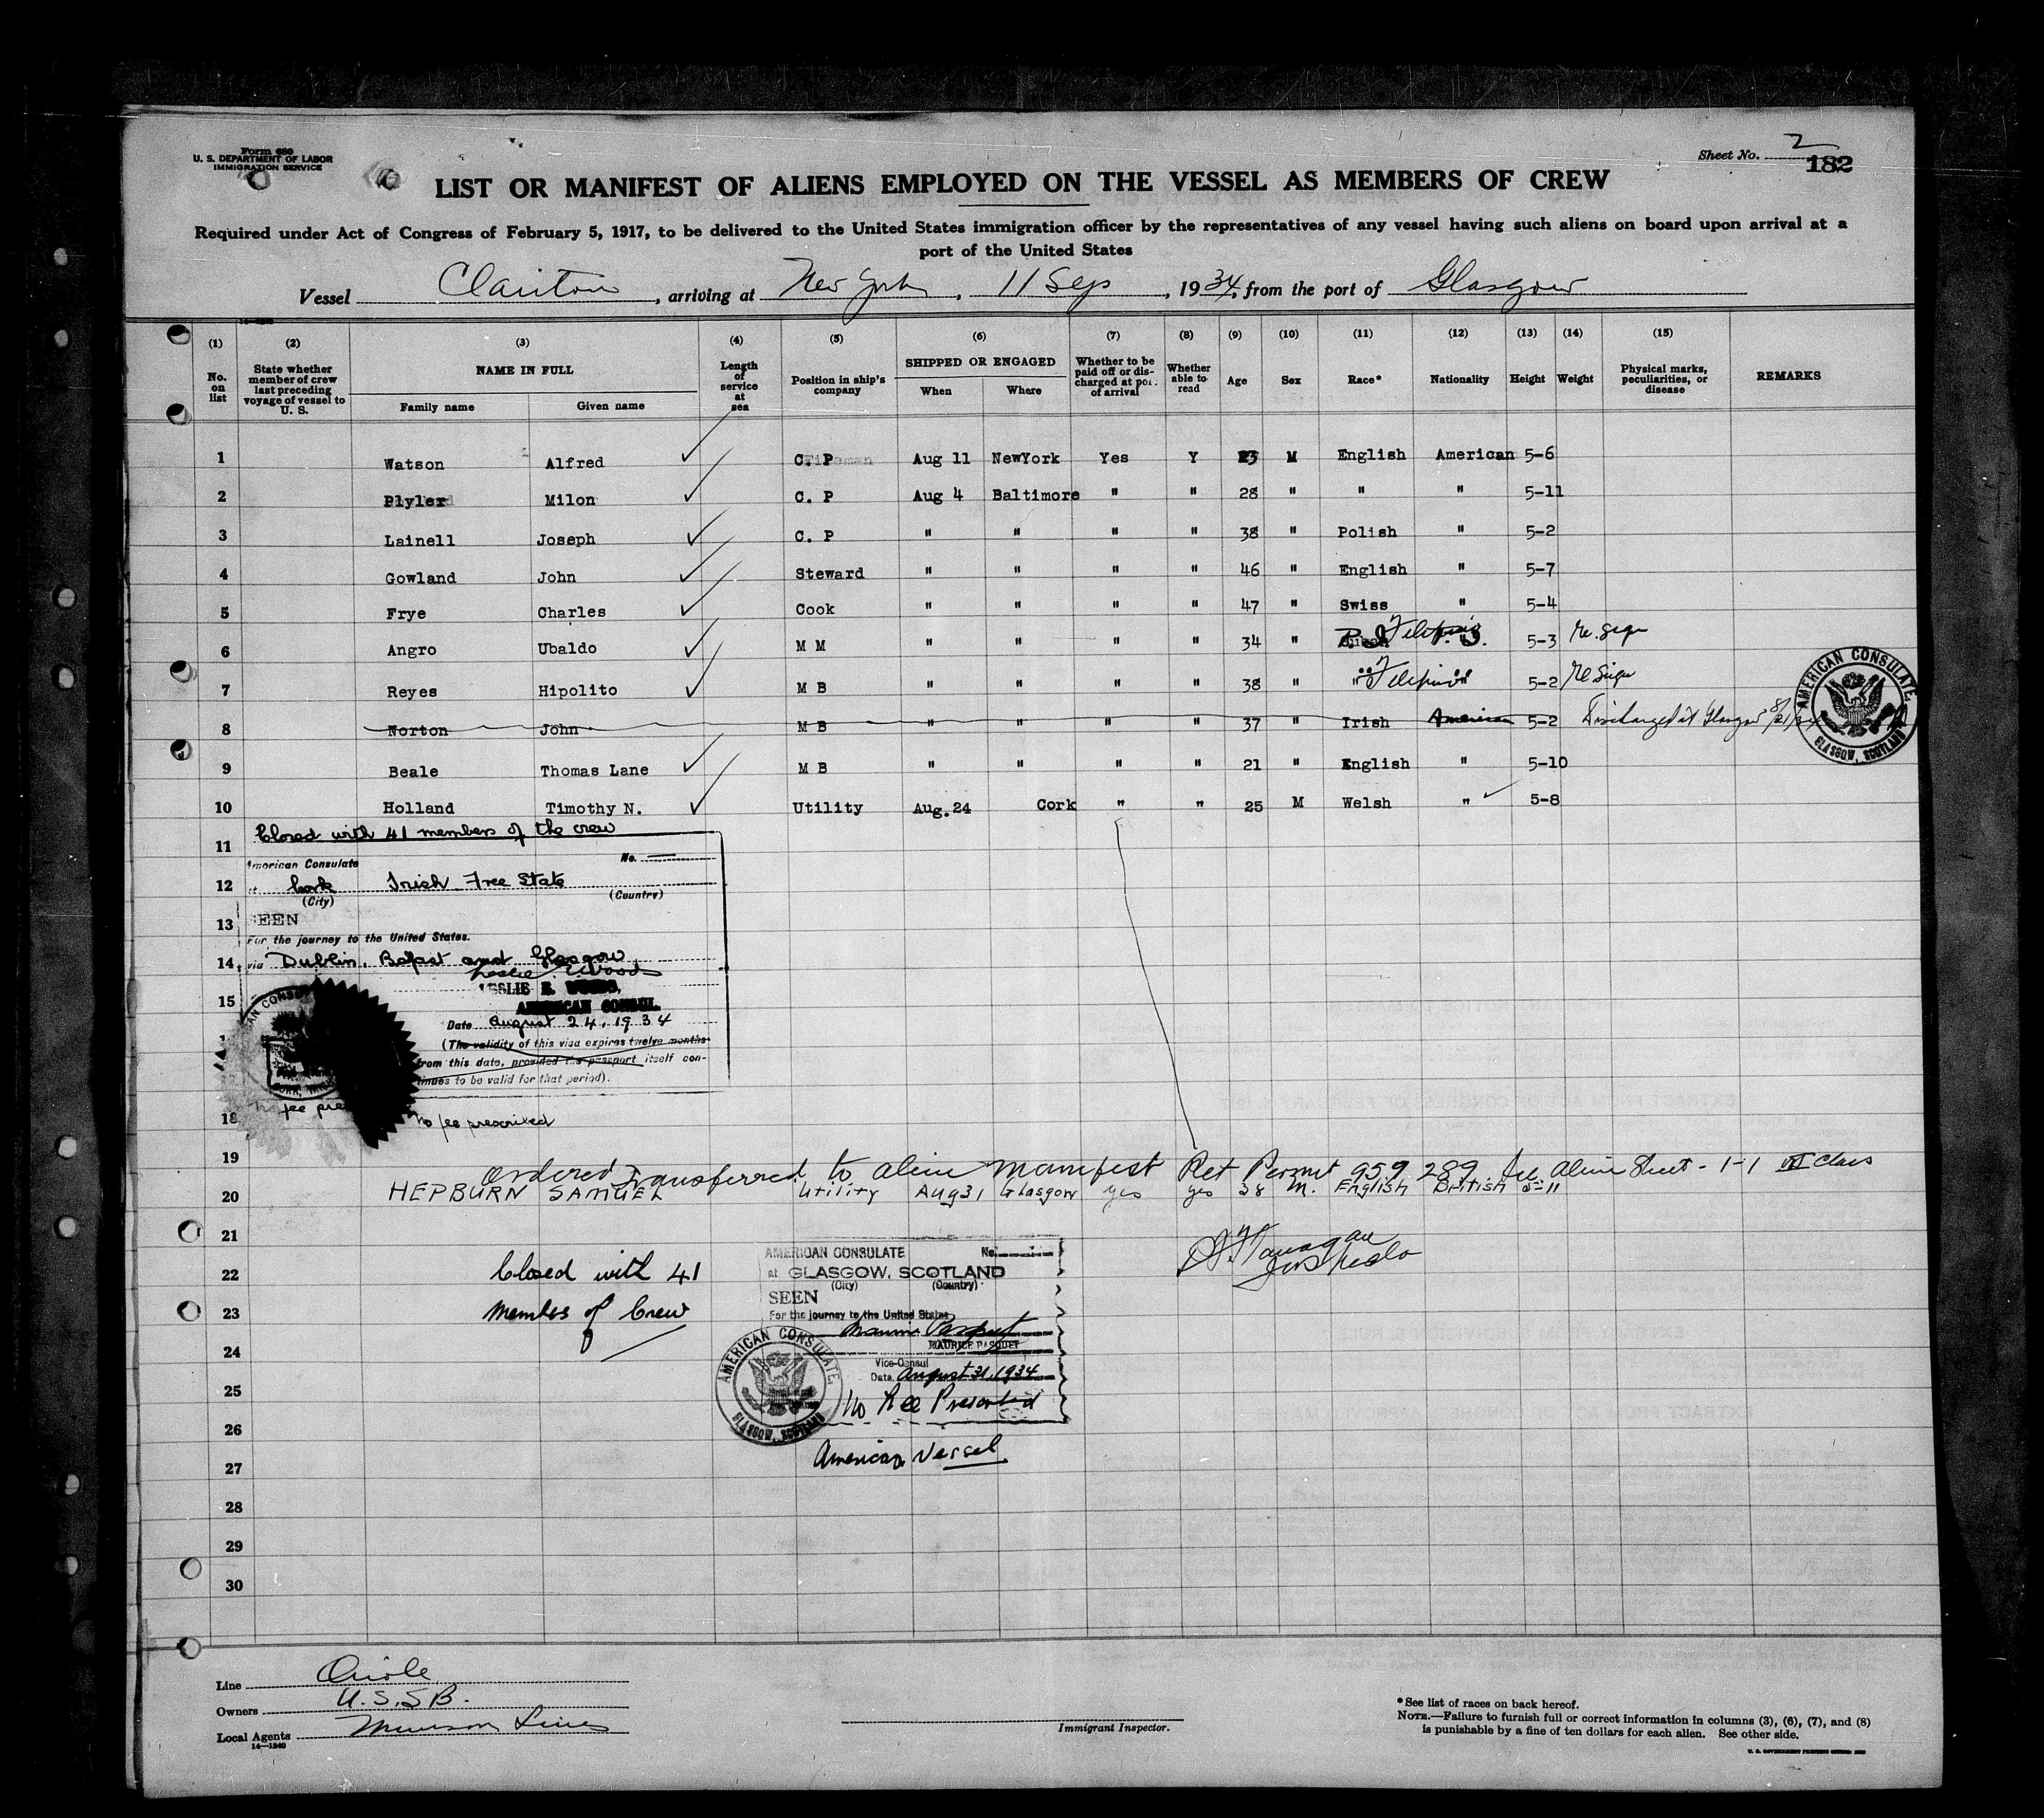 Form 680
U. S. DEPARTMENT OF LABOR
IMMIGRATION SERVICE
Sheet No. 2
182
LIST OR MANIFEST OF ALIENS EMPLOYED ON THE VESSEL AS MEMBERS OF CREW
Required under Act of Congress of February 5, 1917, to be delivered to the United States immigration officer by the representatives of any vessel having such aliens on board upon arrival at a
port of the United States
Vessel Clariton, arriving at New York, 11 Sep, 1934, from the port of Glasgow
(1) (2) (3) (4) (5) (6) (7) (8) (9) (10) (11) (12) (13) (14) (15)
No. on list
State whether member of crew last preceding voyage of vessel to U. S.
NAME IN FULL
Family name Given name
Length of service at sea
Position in ship's company
SHIPPED OR ENGAGED
When Where
Whether to be paid off or discharged at port of arrival
Whether able to read
Age Sex Race* Nationality Height Weight
Physical marks, peculiarities, or disease
REMARKS
1 Watson Alfred C. P Aug 11 NewYork Yes Y 23 M English American 5-6
2 Plyler Milon C. P Aug 4 Baltimore " " 28 " " " 5-11
3 Lainell Joseph C. P " " " " 38 " Polish " 5-2
4 Gowland John Steward " " " " 46 " English " 5-7
5 Frye Charles Cook " " " " 47 " Swiss " 5-4
6 Angro Ubaldo M M " " " " 34 " P. I. 5-3
7 Reyes Hipolito M B " " " " 38 " " Filipino " 5-2
8 Norton John M B " " " " 37 " Irish American 5-2 Discharged at Glasgow 8/31/34
9 Beale Thomas Lane M B " " " " 21 " English " 5-10
10 Holland Timothy N. Utility Aug.24 Cork " " 25 M Welsh " 5-8
AMERICAN CONSULATE
GLASGOW, SCOTLAND
11 Closed with 41 members of the crew
American Consulate No.
12 Cork Irish Free State
(City) (Country)
13 SEEN
For the journey to the United States.
14 via Dublin, Belfast and Glasgow
Leslie E. Woods
15 LESLIE E. WOODS,
AMERICAN CONSUL.
Date August 24, 1934
(The validity of this visa expires twelve months
from this date, provided the passport itself con-
tinues to be valid for that period).
18 No fee prescribed
19 Ordered Transferred to alien Manifest Ret Permit 959 289 See Alien Sheet - 1-1 Class
20 HEPBURN SAMUEL Utility Aug 31 Glasgow yes yes 38 M. English British 5-11
21
22 Closed with 41
23 Members of Crew
AMERICAN CONSULATE No.
at GLASGOW, SCOTLAND
(City) (Country)
SEEN
For the journey to the United States
Maurice Pasquet
24 MAURICE PASQUET
Vice-Consul
Date August 31, 1934
25 No Fee Prescribed
AMERICAN CONSULATE
GLASGOW, SCOTLAND
26
27 American Vessel
28
29
30
Line Oriole
Owners U.S.S.B.
Local Agents Munson Lines
14—1240
Immigrant Inspector.
*See list of races on back hereof.
NOTE.—Failure to furnish full or correct information in columns (3), (6), (7), and (8)
is punishable by a fine of ten dollars for each alien. See other side.